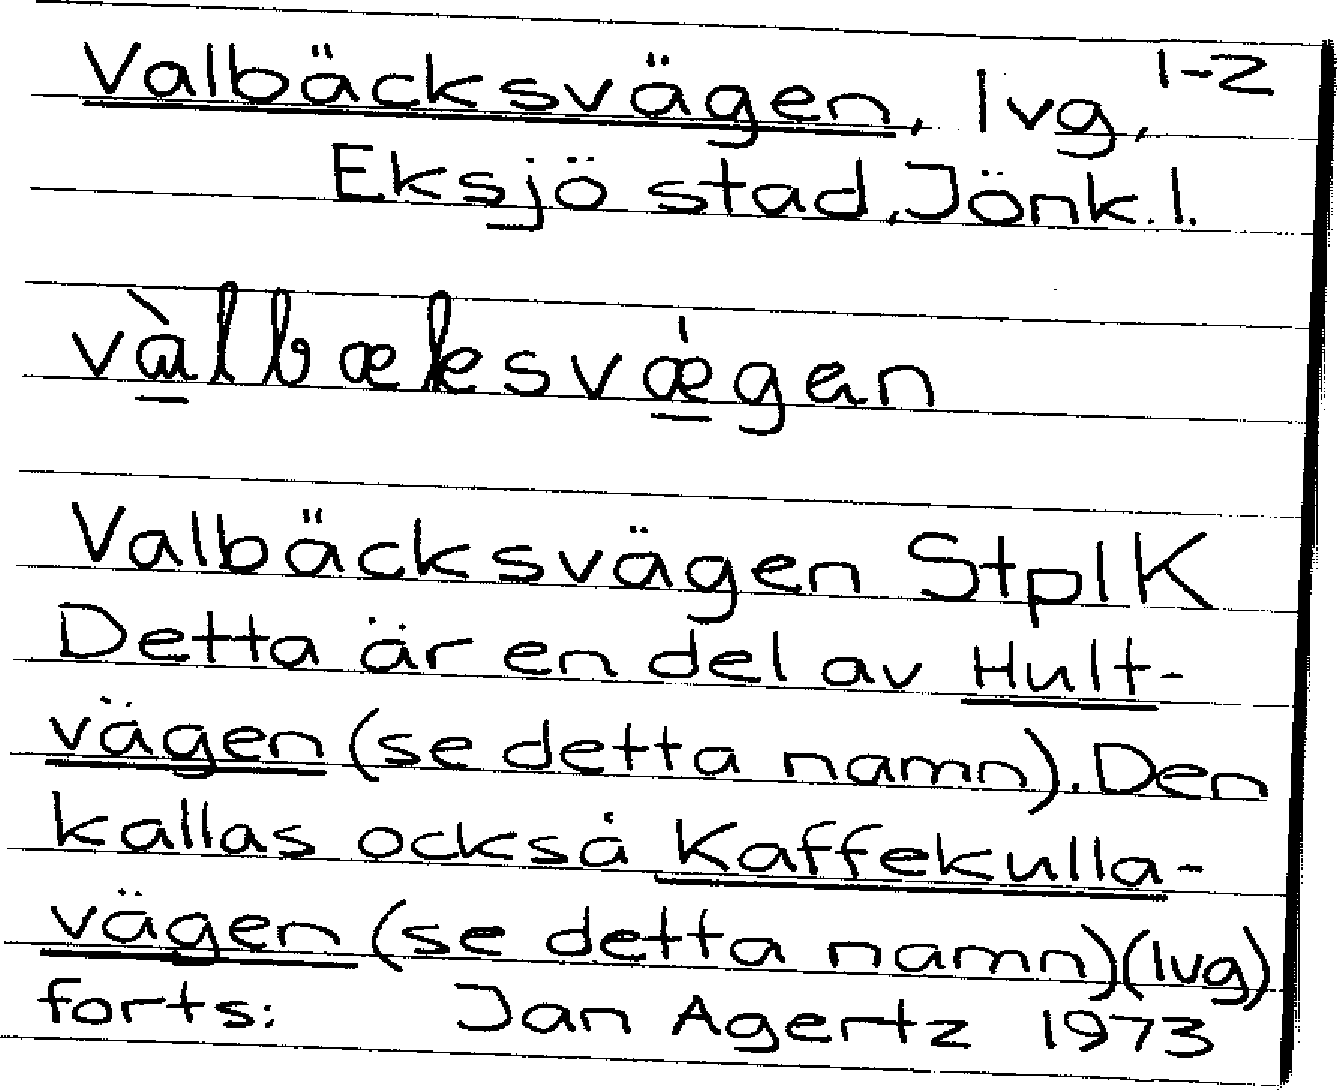 Valbäcksvägen, lvg, 1-2
Eksjö stad, Jönk.l.
vàlbæksvǽgən
Valbäcksvägen StplK
Detta är en del av Hult-
vägen (se detta namn). Den
kallas också Kaffekulla-
vägen (se detta namn)(lvg)
forts: Jan Agertz 1973